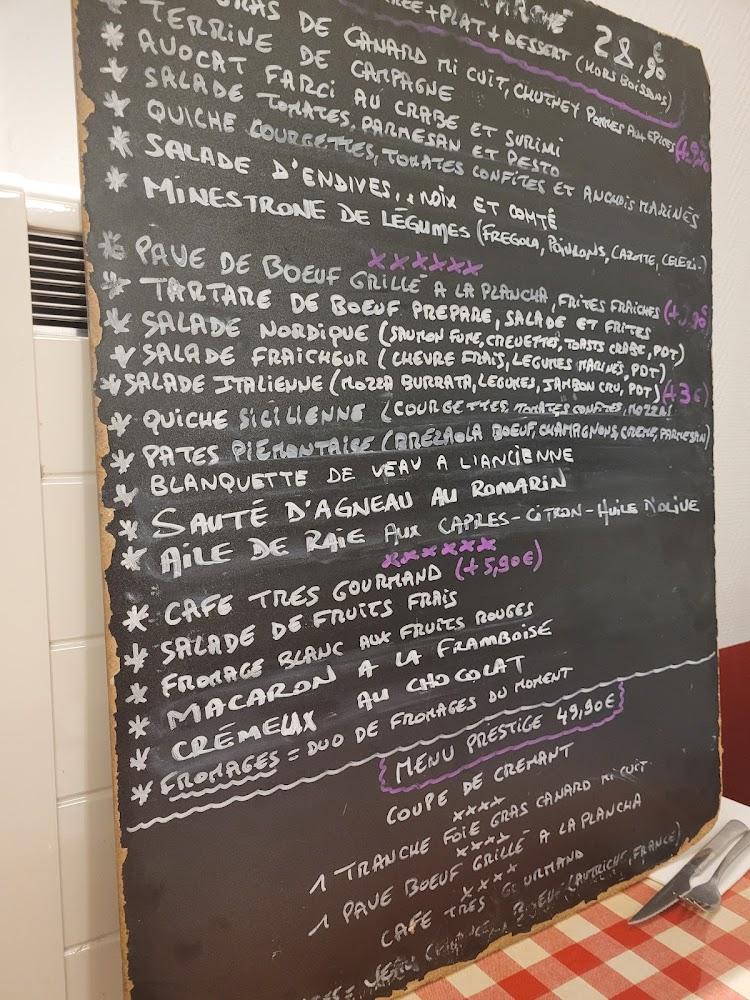 28,90€
+PLAT+DESSERT (HORS BOISSONS)
GRAS DE CANARD MI CUIT, CHUTNEY POMMES AUX EPICES
* TERRINE DE CAMPAGNE
* AVOCAT FARCI AU CRABE ET SURIMI
* SALADE TOMATES, PARMESAN ET PESTO
* QUICHE COURGETTES, TOMATES CONFITES ET ANCHOIS MARINÉS
* SALADE D'ENDIVES, NOIX ET COMTÉ
* MINESTRONE DE LÉGUMES (FREGOLA, POIVRONS, CAROTTE, CELERI-)
xxxxxx
* PAVE DE BOEUF GRILLÉ A LA PLANCHA, FRITES FRAICHES
* TARTARE DE BOEUF PREPARE, SALADE ET FRITES
* SALADE NORDIQUE (SAUMON FUME, CREVETTES, TOASTS CRABE, PDT)
* SALADE FRAICHEUR (CHEVRE FRAIS, LEGUMES MARINÉS, PDT)
* SALADE ITALIENNE (MOZZA BURRATA, LEGUMES, JAMBON CRU, PDT) (+3€)
* QUICHE SICILIENNE (COURGETTES, TOMATES CONFITES, MOZZA)
* PATES PIEMONTAISE (BOEUF, CHAMPAGNONS, CREME, PARMESAN)
* BLANQUETTE DE VEAU A L'ANCIENNE
* SAUTÉ D'AGNEAU AU ROMARIN
* AILE DE RAIE AUX CAPRES-CITRON-HUILE D'OLIVE
xxxxxx
* CAFE TRES GOURMAND (+5,90€)
* SALADE DE FRUITS FRAIS
* FROMAGE BLANC AUX FRUITS ROUGES
* MACARON A LA FRAMBOISE
* CRÉMEUX AU CHOCOLAT
* FROMAGES = DUO DE FROMAGES DU MOMENT
MENU PRESTIGE 49,90€
COUPE DE CREMANT
xxxx
1 TRANCHE FOIE GRAS CANARD MI CUIT
xxxx
1 PAVE BOEUF GRILLÉ A LA PLANCHA
xxxx
CAFE TRES GOURMAND
BOEUF (AUTRICHE, FRANCE)